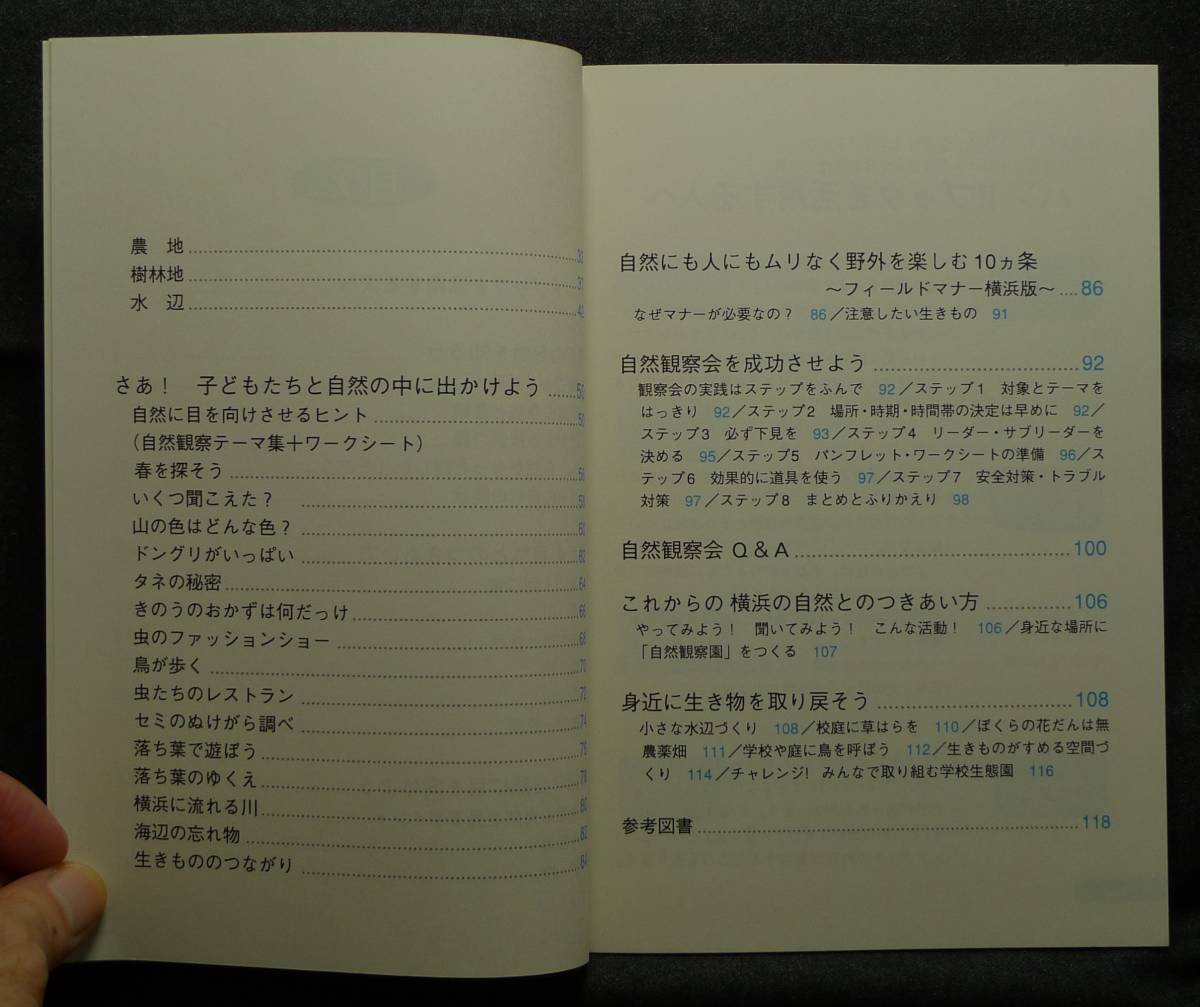 農　地 ........ 33
樹林地 ........ 37
水　辺 ........
さあ！　子どもたちと自然の中に出かけよう ........ 50
自然に目を向けさせるヒント ........ 50
（自然観察テーマ集＋ワークシート）
春を探そう ........ 56
いくつ聞こえた？ ........ 58
山の色はどんな色？ ........ 60
ドングリがいっぱい ........ 62
タネの秘密 ........ 64
きのうのおかずは何だっけ ........ 66
虫のファッションショー ........ 68
鳥が歩く ........ 70
虫たちのレストラン ........ 72
セミのぬけがら調べ ........ 74
落ち葉で遊ぼう ........ 76
落ち葉のゆくえ ........ 78
横浜に流れる川 ........ 80
海辺の忘れ物 ........ 82
生きもののつながり ........ 84
自然にも人にもムリなく野外を楽しむ10ヵ条
～フィールドマナー横浜版～ .... 86
なぜマナーが必要なの？　86／注意したい生きもの　91
自然観察会を成功させよう ........ 92
観察会の実践はステップをふんで　92／ステップ1　対象とテーマを
はっきり　92／ステップ2　場所・時期・時間帯の決定は早めに　92／
ステップ3　必ず下見を　93／ステップ4　リーダー・サブリーダーを
決める　95／ステップ5　パンフレット・ワークシートの準備　96／ス
テップ6　効果的に道具を使う　97／ステップ7　安全対策・トラブル
対策　97／ステップ8　まとめとふりかえり　98
自然観察会 Q＆A ........ 100
これからの 横浜の自然とのつきあい方 ........ 106
やってみよう！　聞いてみよう！　こんな活動！　106／身近な場所に
「自然観察園」をつくる　107
身近に生き物を取り戻そう ........ 108
小さな水辺づくり　108／校庭に草はらを　110／ぼくらの花だんは無
農薬畑　111／学校や庭に鳥を呼ぼう　112／生きものがすめる空間づ
くり　114／チャレンジ！ みんなで取り組む学校生態園　116
参考図書 ........ 118